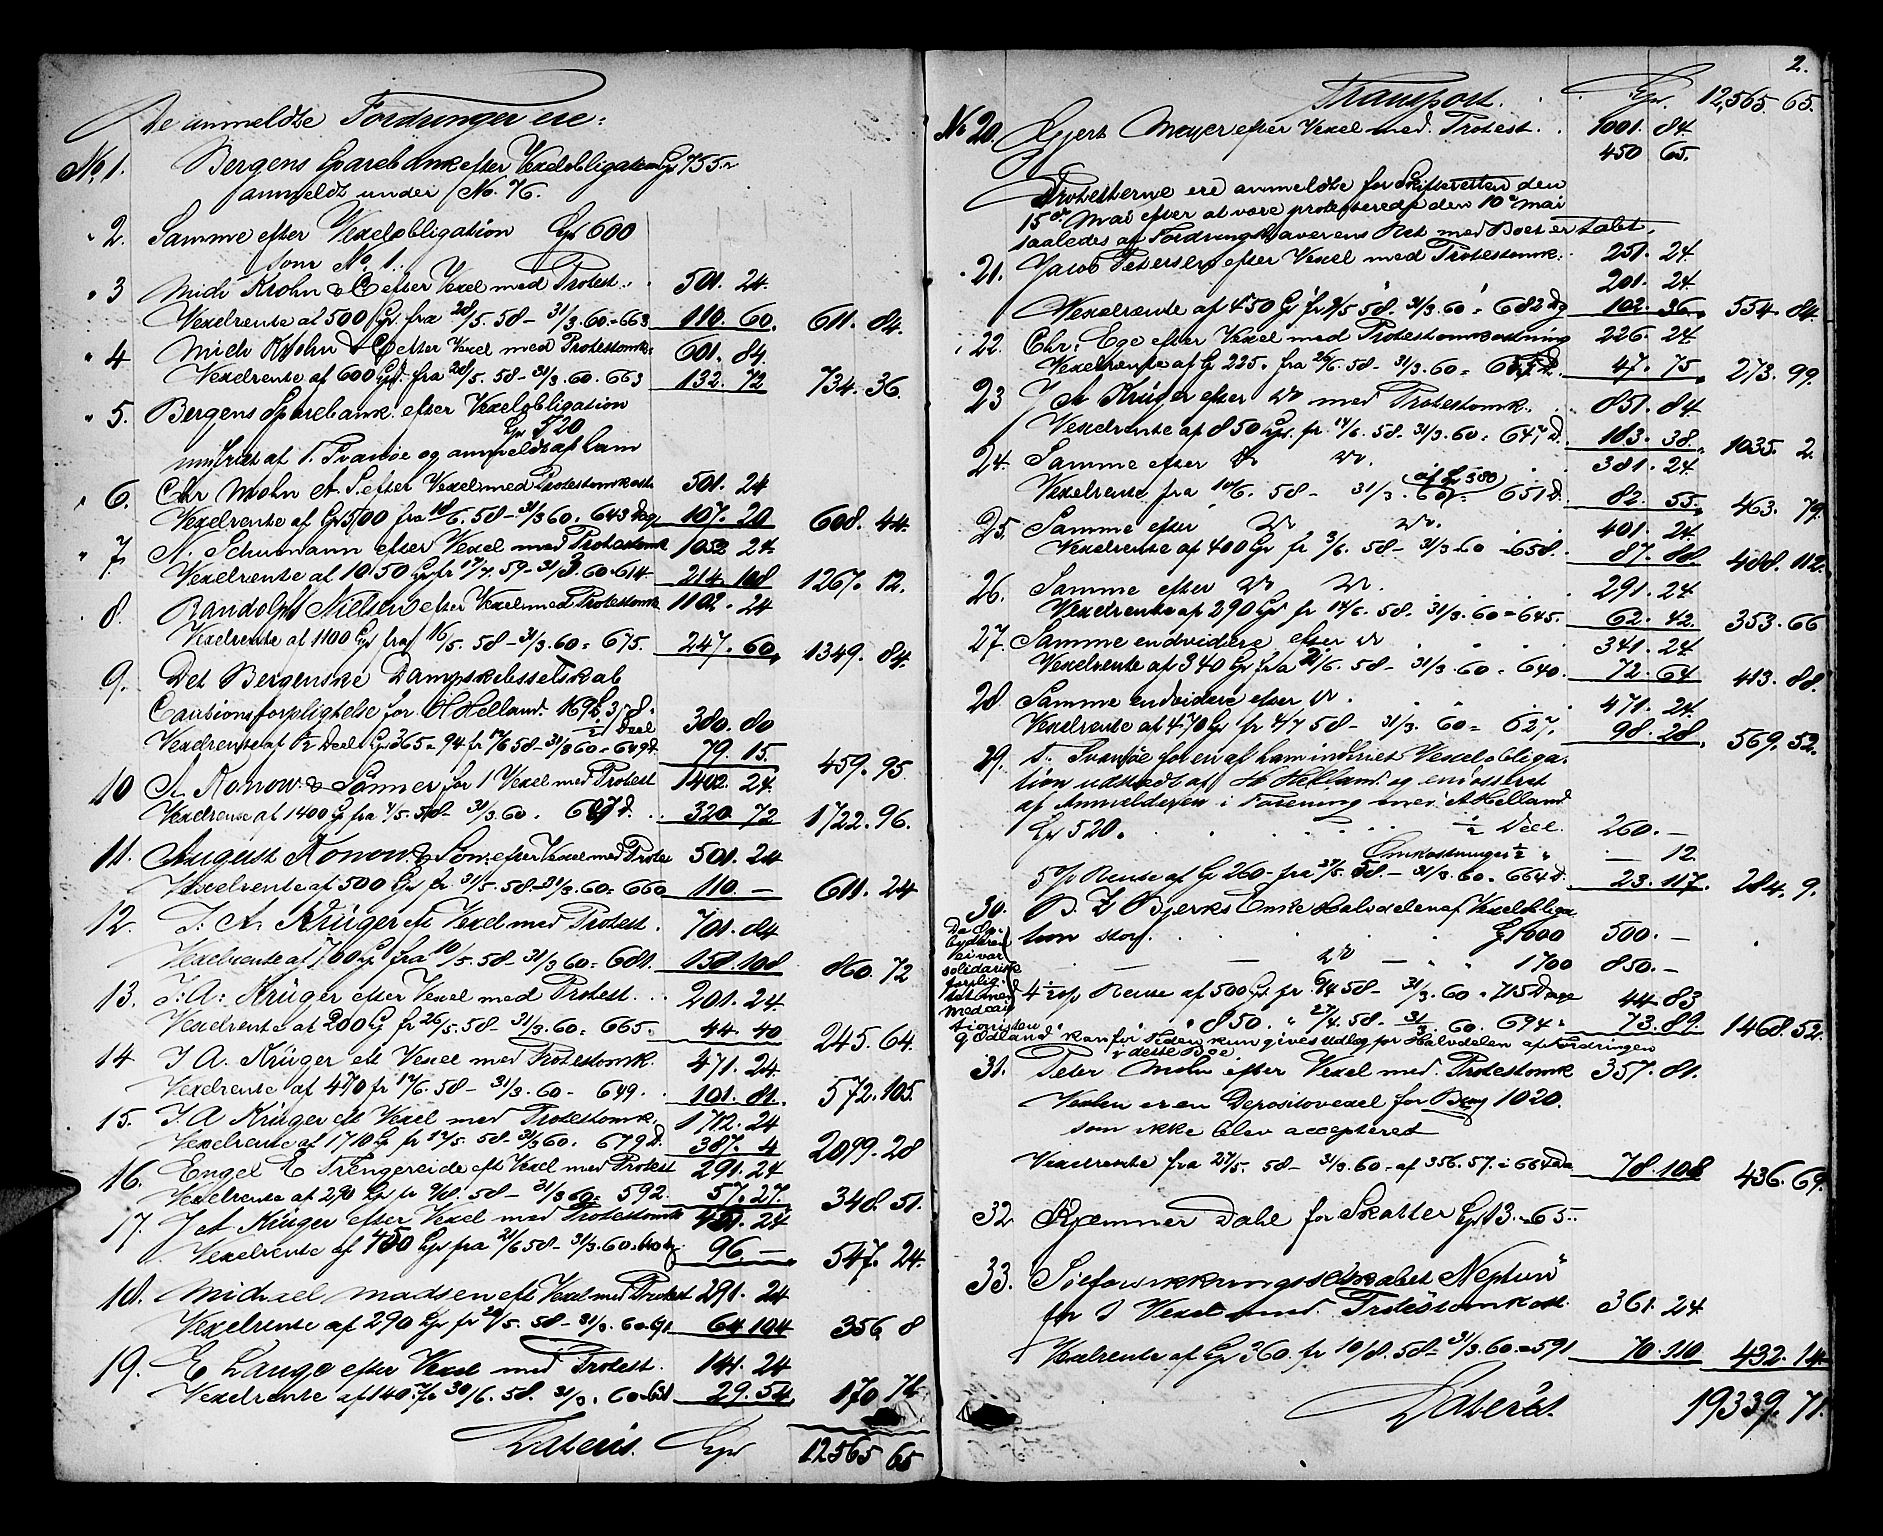 De anmeldte Fordringer ere:
No. 1. Bergens Sparebank efter Vexelobligation Spd 755
anmeldt under No. 76.
" 2. Samme efter Vexelobligation Spd 600
som No. 1.
" 3 Mich Krohn & C efter Vexel med Protest. 501. 24.
Vexelrente af 500 Spd. fra 28/5. 58 - 31/3. 60. = 663 110. 60. 611. 84.
" 4 Mich Krohn & C efter Vexel med Protestomk. 601. 84.
Vexelrente af 600 Spd. fra 28/5. 58 - 31/3. 60. 663 132. 72 734. 36.
" 5. Bergens Sparebank efter Vexelobligation
Spd 520
indfriet af T. Svanøe og anmeldt af ham
" 6. Chr Mohn A. S. efter Vexel med Protestomkost. 501. 24
Vexelrente af Spd 500 fra 18/6. 58 - 31/3 60. 643 Dag 107. 20 608. 44.
" 7. N. Schumann efter Vexel med Protestomk 1052 24.
Vexelrente af 1050 Spd fr 17/7. 59 - 31/3. 60 = 614 214. 108 1267. 12.
8. Randolph Nielsen efter Vexel med Protestomk 1102. 24
Vexelrente af 1100 Spd fra 16/5. 58 - 31/3 60 = 675. 247. 60. 1349. 84.
9. Det Bergenske Dampskibsselskab
Cautionsforpligtelse for H Helland. 1/2 Deel 380. 80
Vexelrente af 1/2 Deel Spd 365 - 94 fr 12/6 58 - 31/3 60 = 649 D. 79. 15. 459. 95
10 A. Konow & Sønner for 1 Vexel med Protest 1402. 24.
Vexelrente af 1400 Spd fra 4/5. 58 - 31/3. 60. 687 D. 320. 72 1722. 96.
11. August Konow & Søn: efter Vexel med Protes 501. 24
Vexelrente af 500 Spd fr. 31/5. 58 - 31/3. 60 = 660 110. — 611. 24
12. J. A. Krüger eft Vexel med Protest. 701. 84
Vexelrente af 700 Spd fra 10/5. 58 - 31/3 60 = 681. 158. 108 860. 72
13. J: A: Krüger efter Vexel med Protest. 201. 24.
Vexelrente af 200 Spd fr 26/5. 58 - 31/3. 60 = 665. 44. 40 245. 64.
14. J A. Krüger eft Vexel med Protestomk. 471. 24.
Vexelrente af 470 fr 12/6. 58 - 31/3. 60 - 649. 101. 81. 572. 105.
15. J. A Krüger eft Vexel med Protestomk. 1712. 24
Vexelrente af 1710 Spd fr 12/5. 58 - 31/3 60. 679 D. 387. 4 2099. 28
16. Engel E Trengereide eft Vexel med Protest 291. 24
Vexelrente af 290 Spd fr 9/8. 58 - 31/3 60 = 592. 57. 27. 348. 51.
17. J A Krüger efter Vexel med Protestomk 451. 24
Vexelrente af 450 Spd fra 21/6 58 - 31/3. 60 = 640 D. 96. — 547. 24.
18. Michael Madsen eft Vexel med Protest 291. 24
Vexelrente af 290 Spd fr 20/5. 58 - 31/3. 60 = 671 64 104 356 8
19. E Lange efter Vexel med Protest. 141. 24
Vexelrente af 140 fr 30/6. 58. 31/3. 60 = 631 29. 54. 170 78
Lateris. Spd 12565 65
2.
Transport. Spd. 12,565. 65.
No 20. Gjert Meyer efter Vexel med Protest. 1001. 84.
450 65.
Protesterne ere anmeldte for Skifteretten den
15de Mai efter at være protesterede den 10de Mai
saaledes at Fordringshaverens Ret mod Boet er tabt.
" 21. Jacob Petersen efter Vexel med Protestomk. 251. 24
201. 24
Vexelrente af 450 Spd fr 9/5 58. 31/3. 60 = 682 Dg 102. 36. 554. 84.
" 22. Chr. Ege efter Vexel med Protestomkostning 226. 24
Vexelrente af Spd 225. fra 26/6. 58 - 31/3. 60 = 47. 75. 273. 99.
23 J A Krüger efter do med Protestomk. 851. 84
Vexelrente af 850 Spd. fr. 12/6. 58. 31/3. 60 = 647 D. 183. 38. 1035. 2.
24. Samme efter do do. 381. 24
Vexelrente fra 10/6. 58 - 31/3. 60. af Spd 380 651 D. 82. 55. 463. 79.
25. Samme efter do do. 401. 24.
Vexelrente af 400 Spd fr 3/6. 58 - 31/3 60 = 658. 87. 88. 488. 112.
26. Samme efter do do. 291. 24
Vexelrente af 290 Spd fr 14/6. 58. 31/3. 60 = 645. 62. 42. 353. 66
27. Samme endvidere efter do 341. 24
Vexelrente af 340 Spd fra 21/6. 58 - 31/3. 60 = 640. 72. 64 413. 88.
28 Samme endvidere efter do. 471. 24.
Vexelrente af 470 Spd fr 4/7 58 - 31/3. 60 = 627. 98. 28. 569. 52.
29. T. Svanøe for en af ham indfriet Vexelobliga-
tion udstedt af H Helland og endosseret
af Anmelderen i Forening med A Helland
Spd 520. 1/2 Deel. 260. —
Omkostninger 1/2 " — 12
5 % Rente af Spd 260 - fra 27/5. 58 - 31/3. 60 = 664 D. 23. 117. 284. 9.
30. B. Z Bjerks Enke Halvdelen af Vexelobliga
tion stor. Spd 1000 500. —
— — do — " 1700 850. —
4 1/2 % Rente af 500 Spd fr. 6/4 58 - 31/3. 60 = 715 Dage 44. 83
" " 850. " 27/4. 58. - 31/3. 60. 694 " 73. 89. 1468. 52.
Da
var
solidarisk
forplig-
tet med
Medcau
tionisten
G Odland kan for Tiden kun gives Udlæg for Halvdelen af Fordringen
i dette Boe.
31. Peter Mohn efter Vexel med Protestomk 357. 81.
Vexlen er en Depositovexel for 1020.
som ikke blev accepteret
Vexelrente fra 27/5. 58 - 31/3. 60 - af 356. 57. = 664 Da 78. 108 436. 69.
32 Kjemner Dahl for Skatter Spd 13. - 65.
33. Sildforsikkringsselskabet "Neptun"
for 1 Vexel med Protestomkost. 361. 24
Vexelrente af Spd 360. fr 10/8. 58 - 31/3. 60 = 591 70. 110 432. 14.
Lateris. 19339. 71.